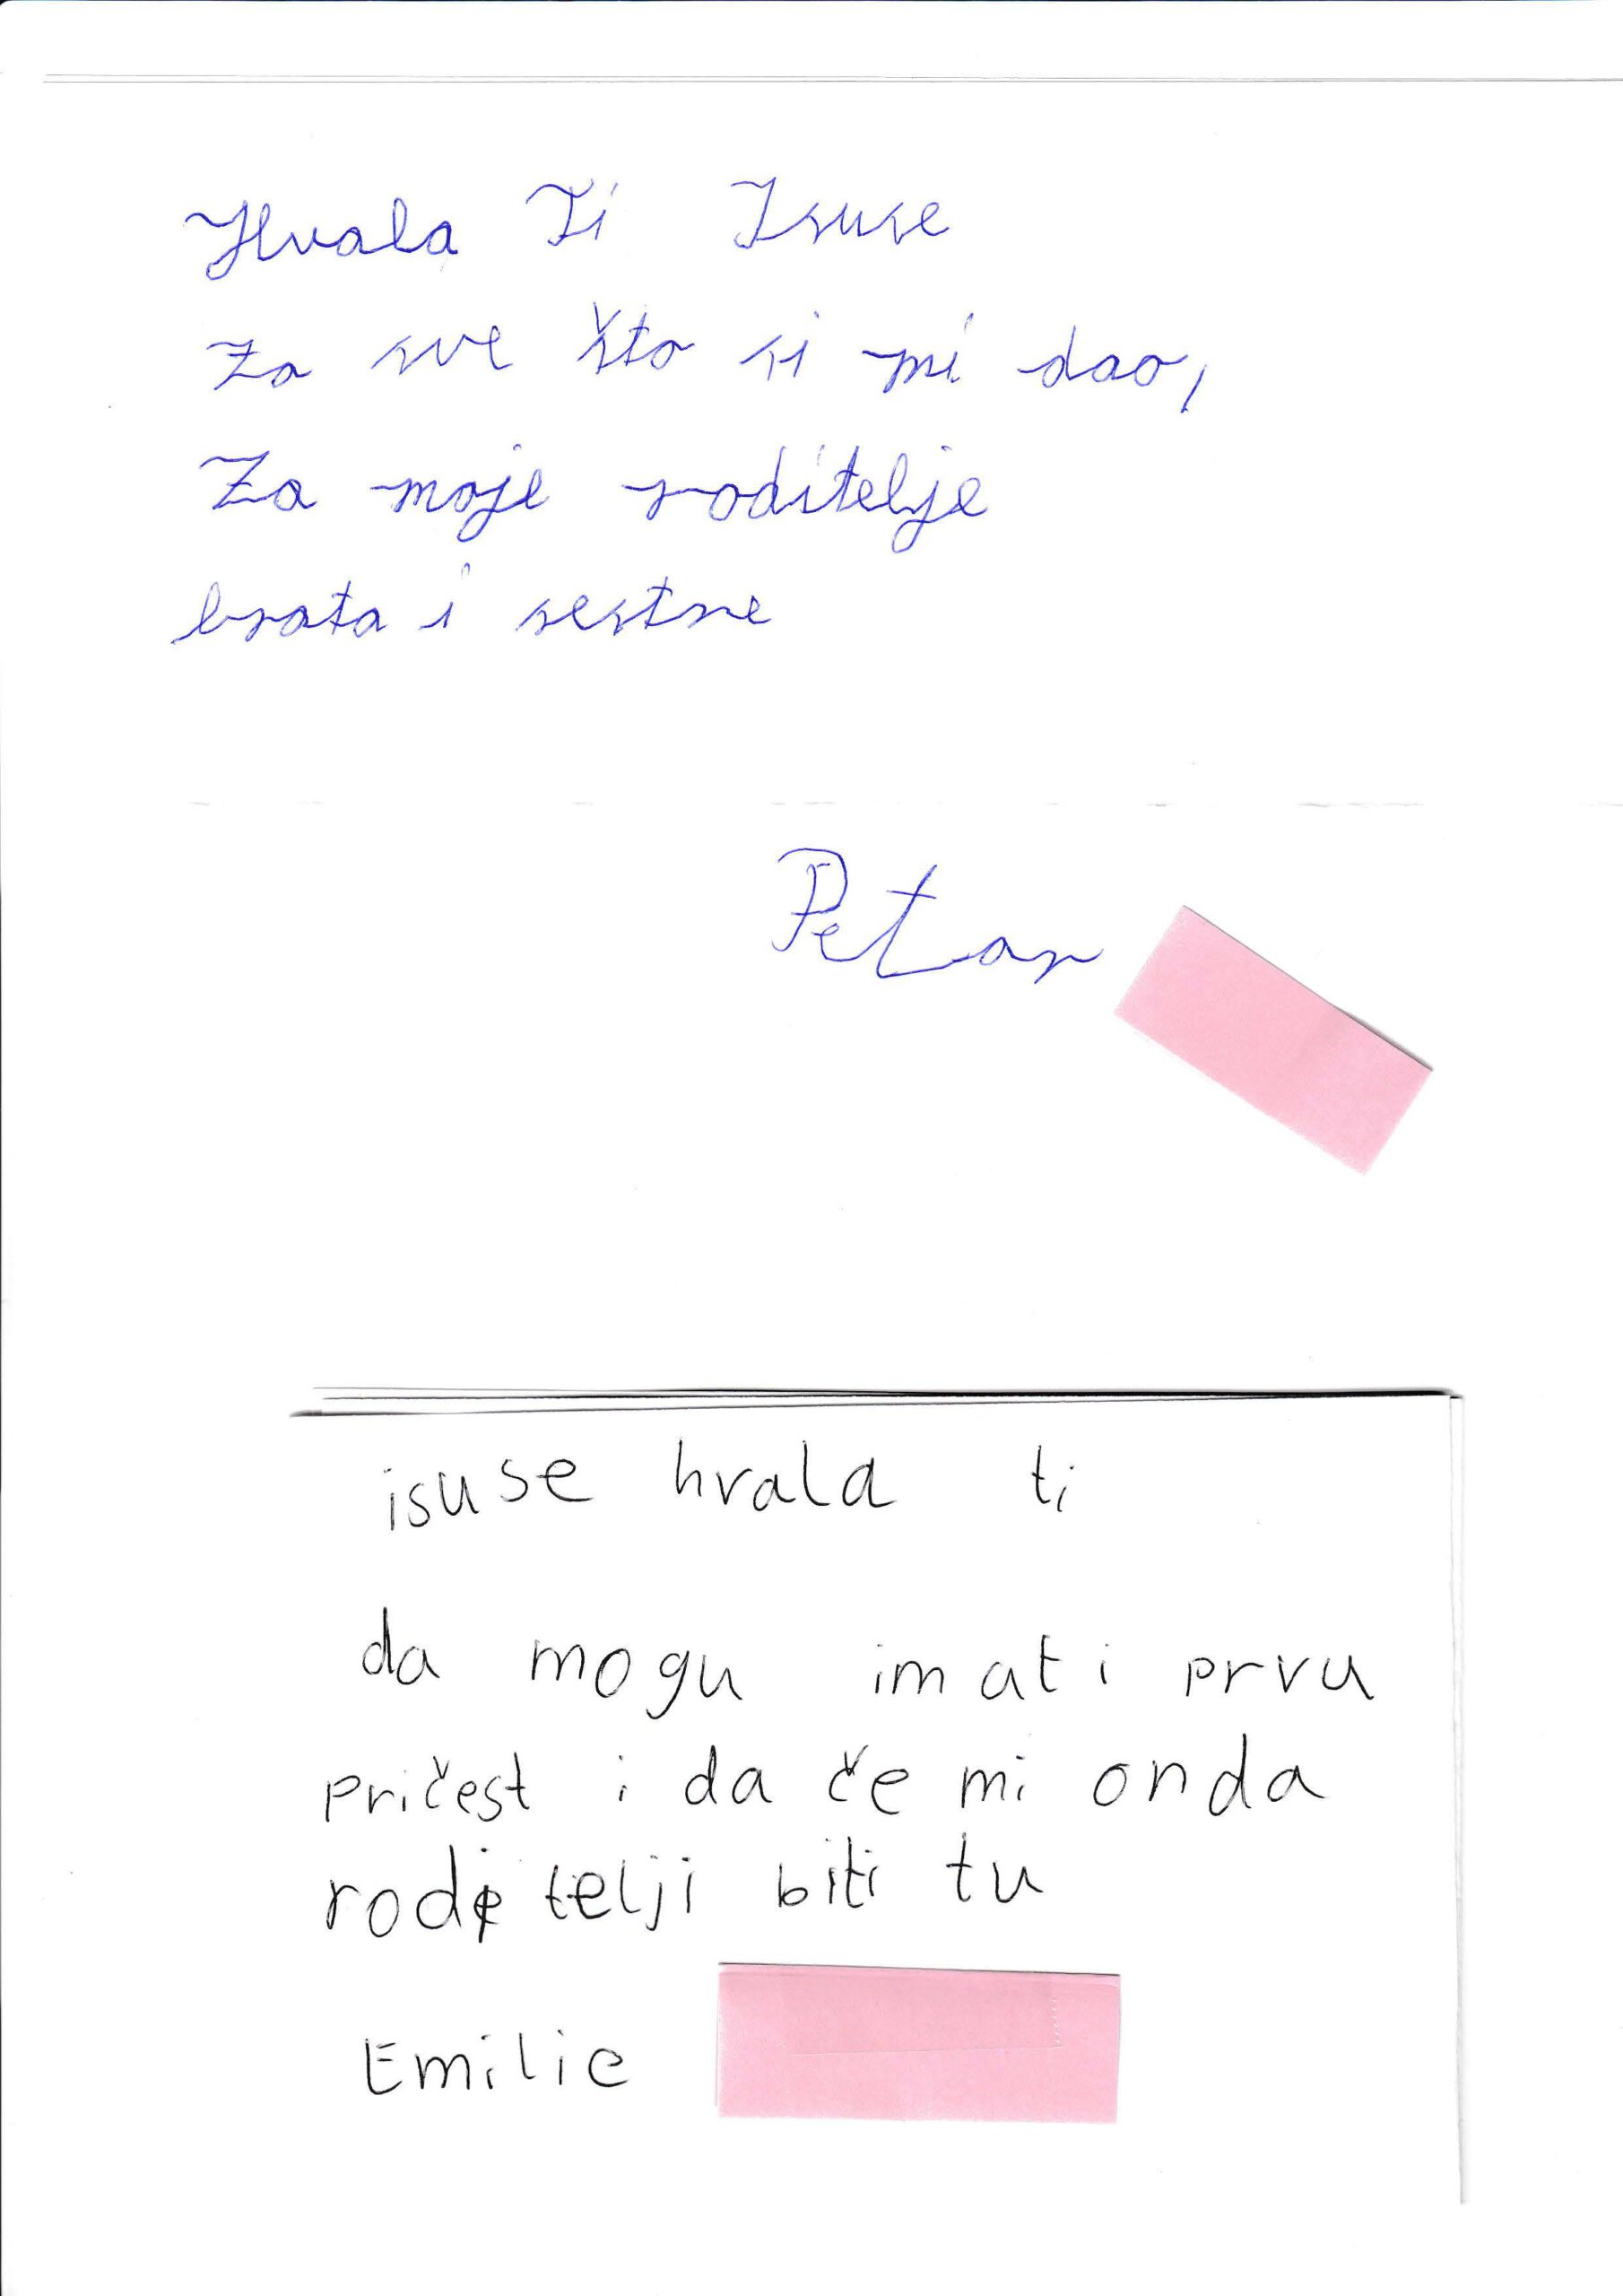 Hvala Ti Isuse
za sve što si mi dao,
Za moje roditelje
brata i sestre
Petar
isuse hvala ti
da mogu imati prvu
pričest i da če mi onda
roditelji biti tu
Emilie